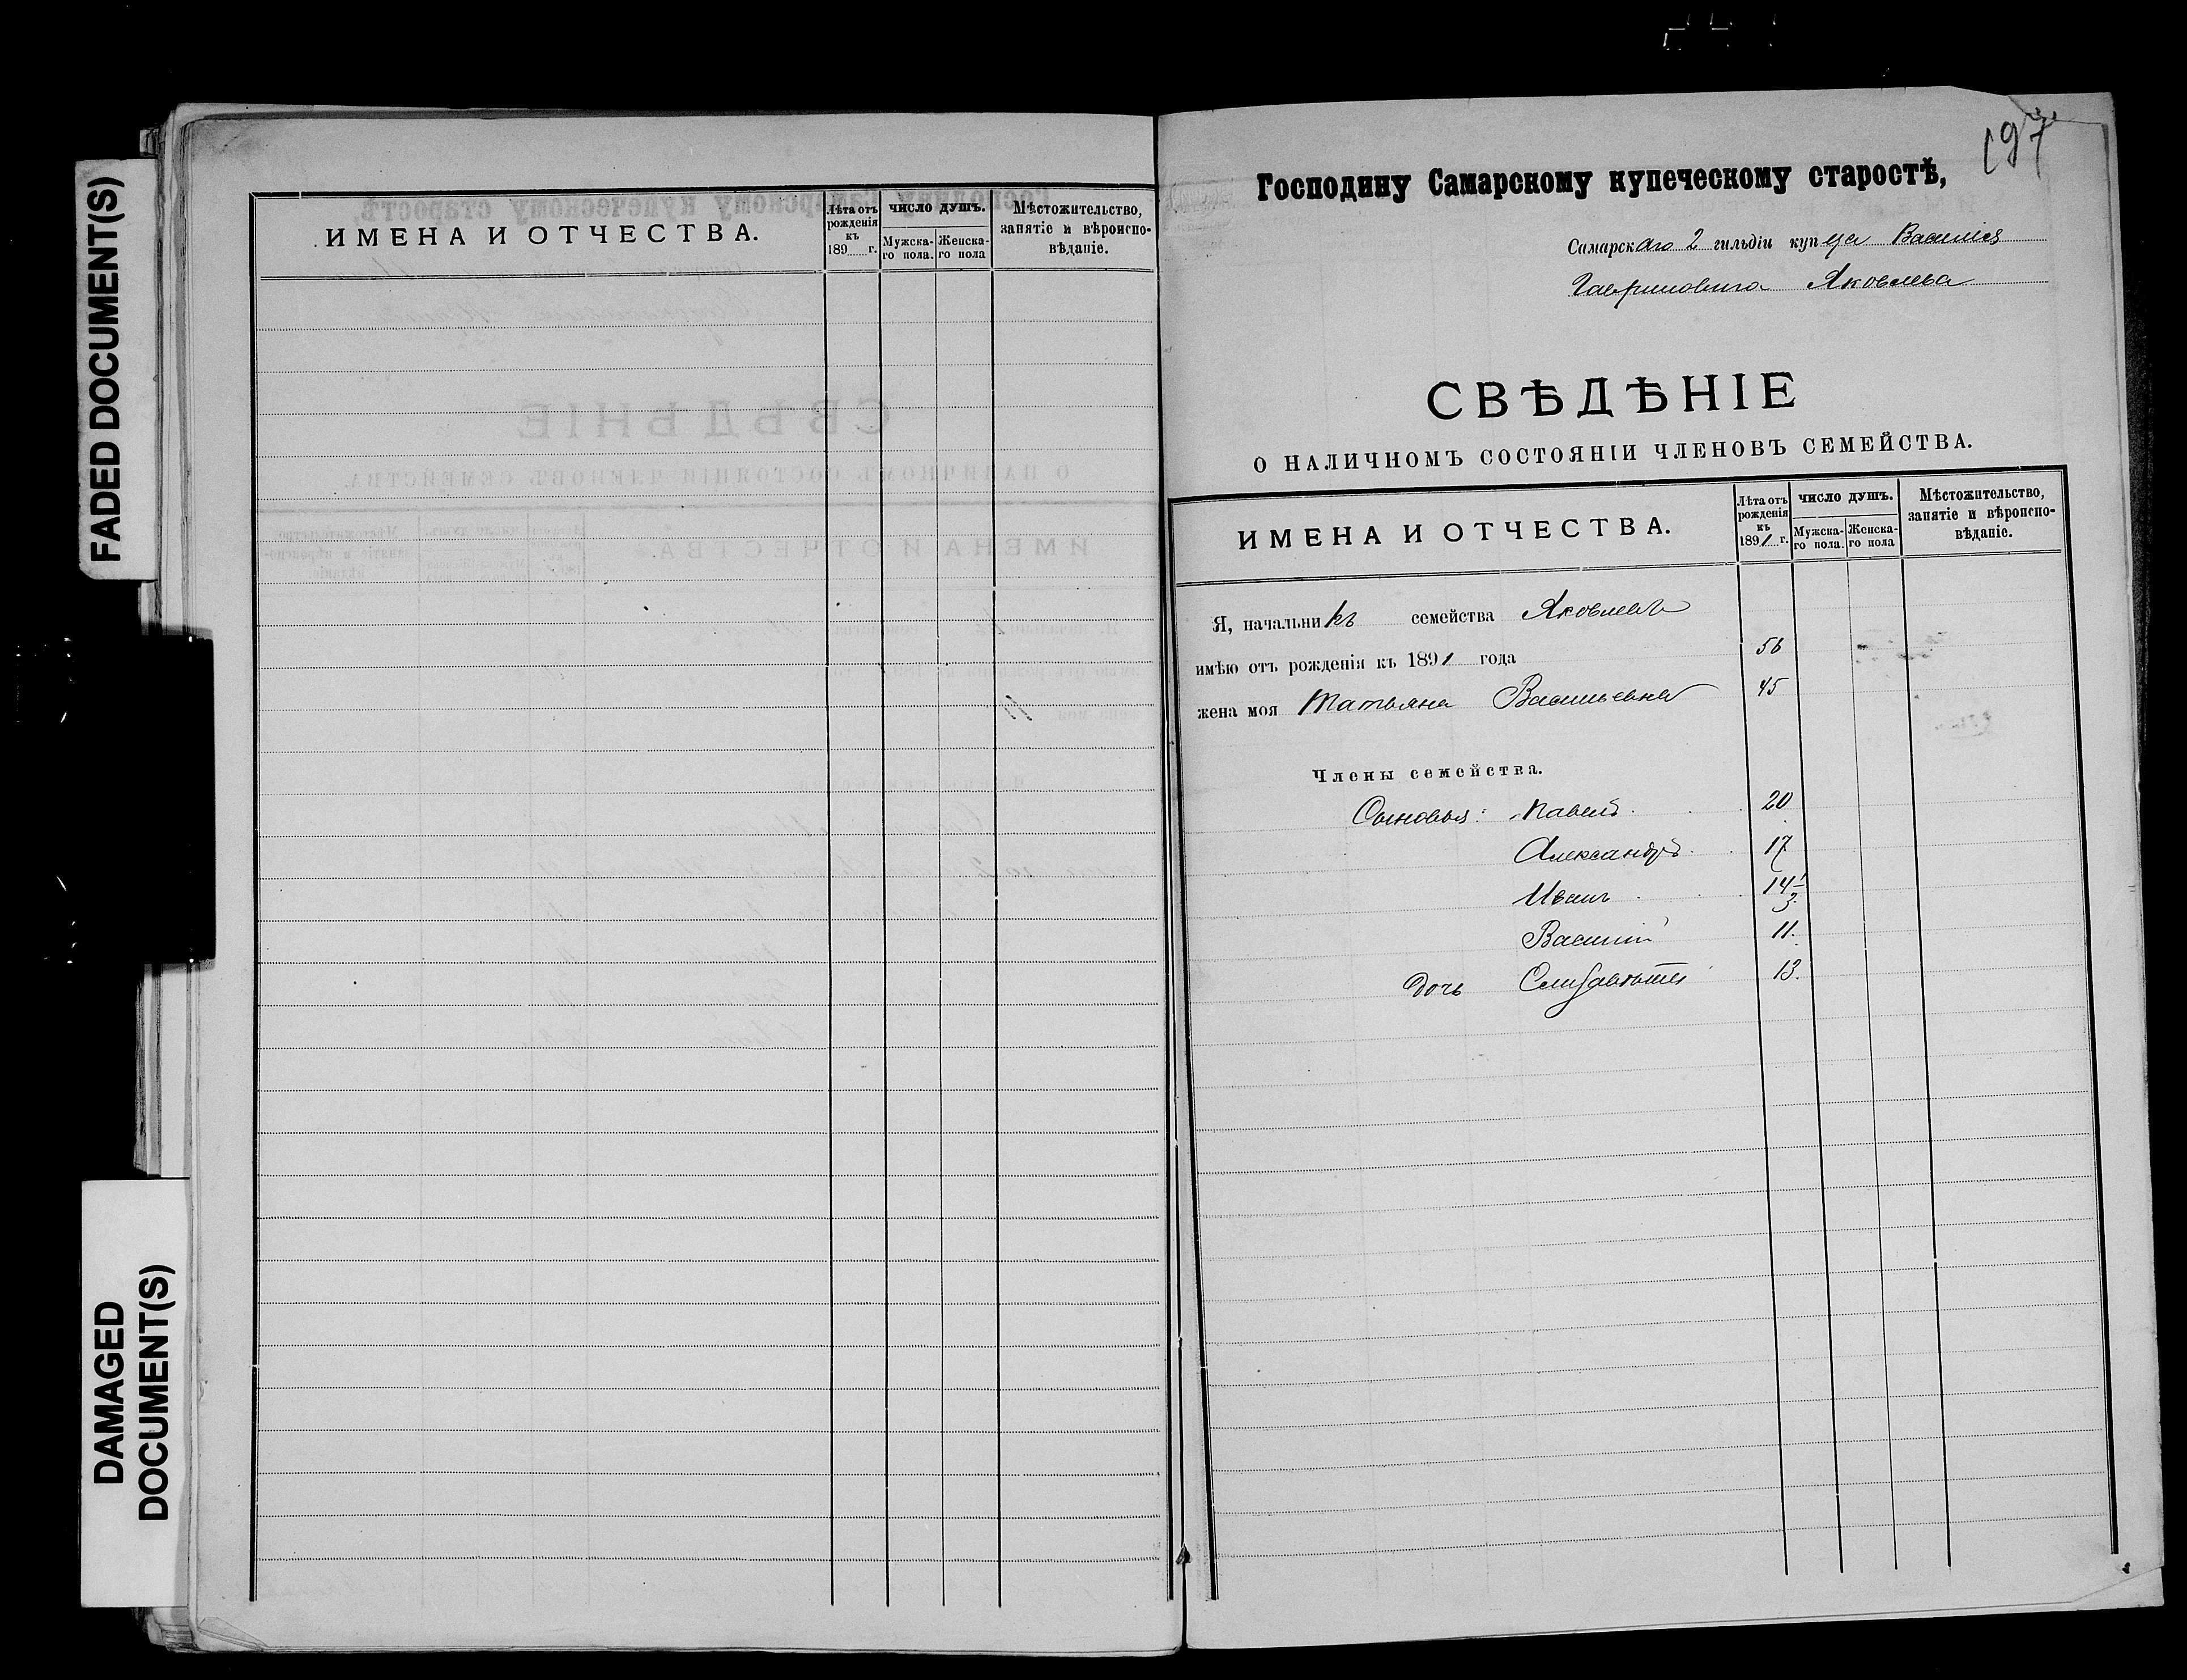 FADED DOCUMENT(S)
DAMAGED
DOCUMENT(S)
ИМЕНА И ОТЧЕСТВА.
Лѣта отъ рожденія къ 189 г.
ЧИСЛО ДУШЪ.
Мужска-го пола.
Женска-го пола
Мѣстожительство, занятіе и вѣроиспо-вѣданіе.
197
Господину Самарскому купеческому старостѣ,
Самарскаго 2 гильдіи купца Василія
Гавриловича Яковлева
СВѢДѢНІЕ
О НАЛИЧНОМЪ СОСТОЯНІИ ЧЛЕНОВЪ СЕМЕЙСТВА.
ИМЕНА И ОТЧЕСТВА.
Лѣта отъ рожденія къ 1891 г.
ЧИСЛО ДУШЪ.
Мужска-го пола.
Женска-го пола
Мѣстожительство, занятіе и вѣроиспо-вѣданіе.
Я, начальникъ семейства Яковлевъ
имѣю отъ рожденія къ 1891 года 56
жена моя Татьяна Васильевна 45
Члены семейства.
Сыновья: Павелъ. 20
Александръ. 17
Иванъ 14
Василій 11.
Дочь Елизавета 13.